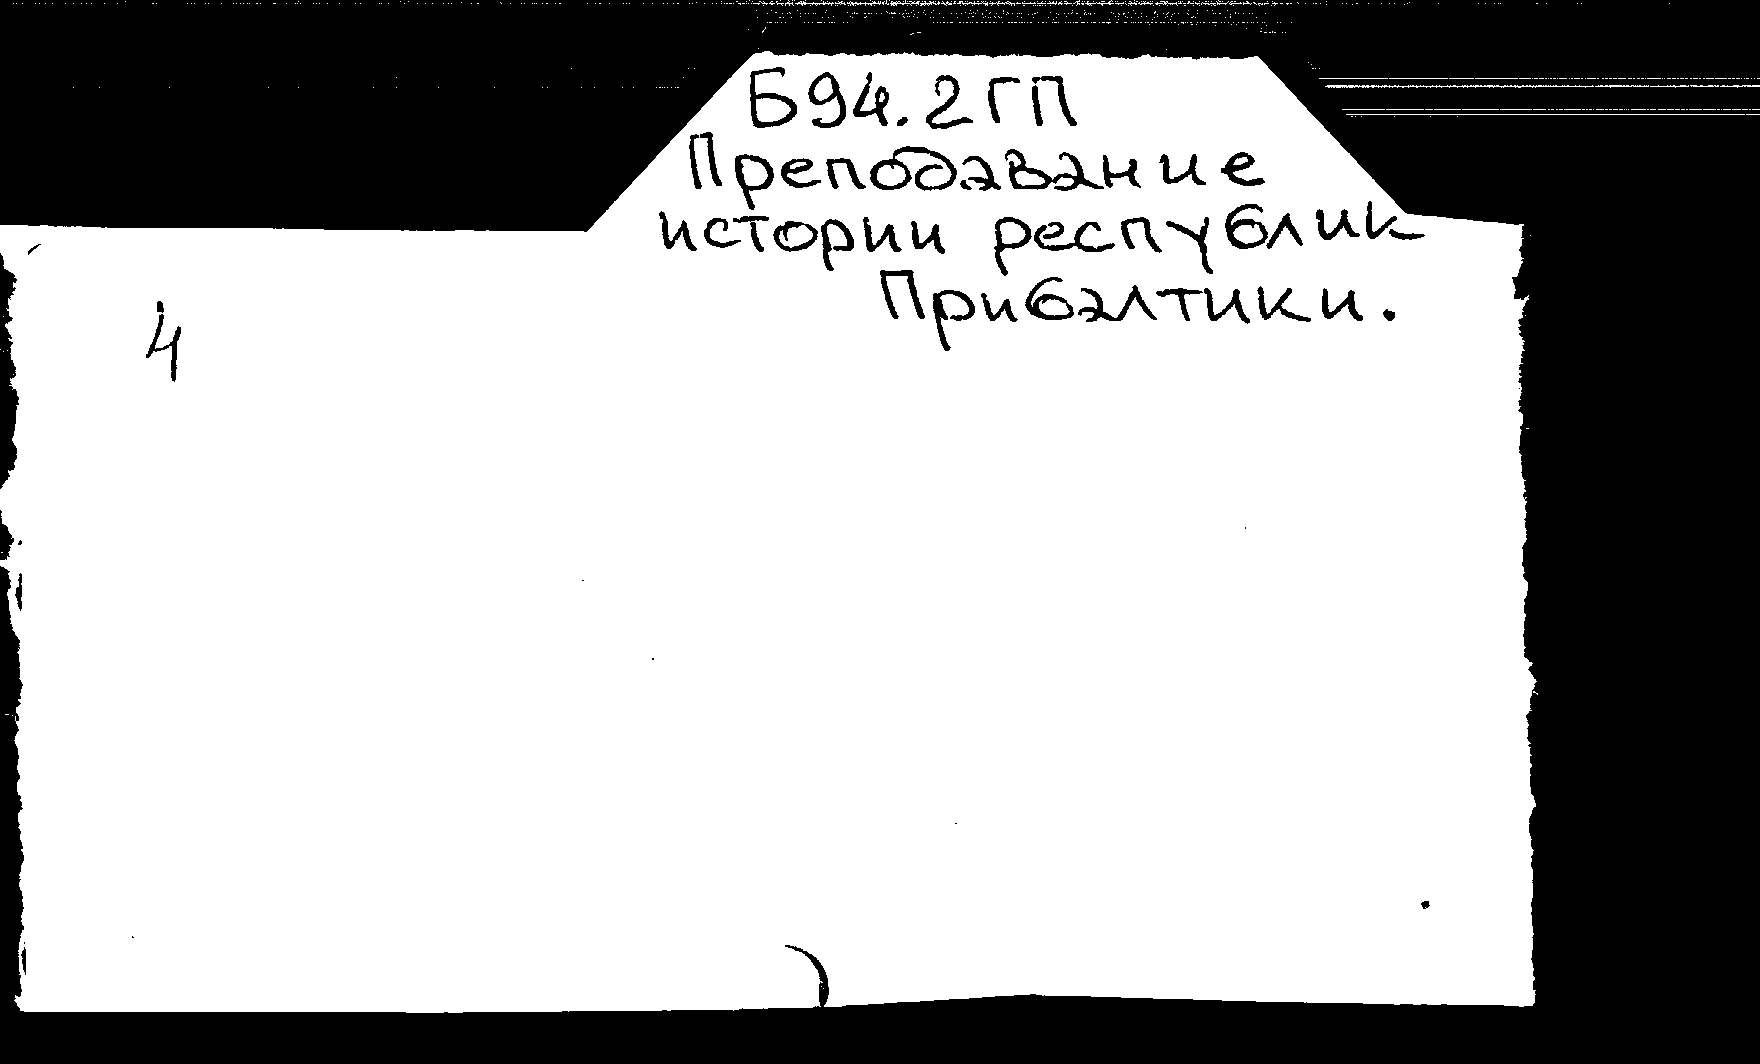 Б94.2ГП
Преподавание
истории республик
Прибалтики.
4